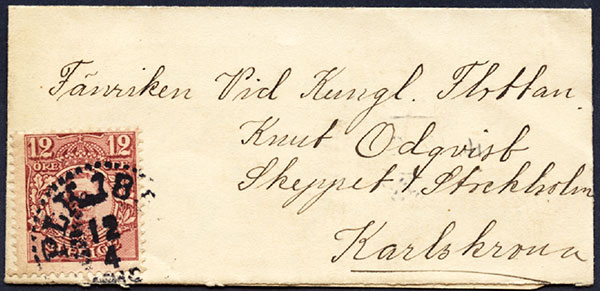 Fänriken Vid Kungl. Flottan
Knut Odqvist
Skeppet Stockholm
Karlskrona
12 12
ÖRE
PLK 18
12
4